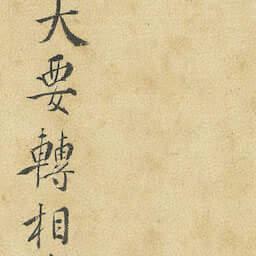 大要轉相